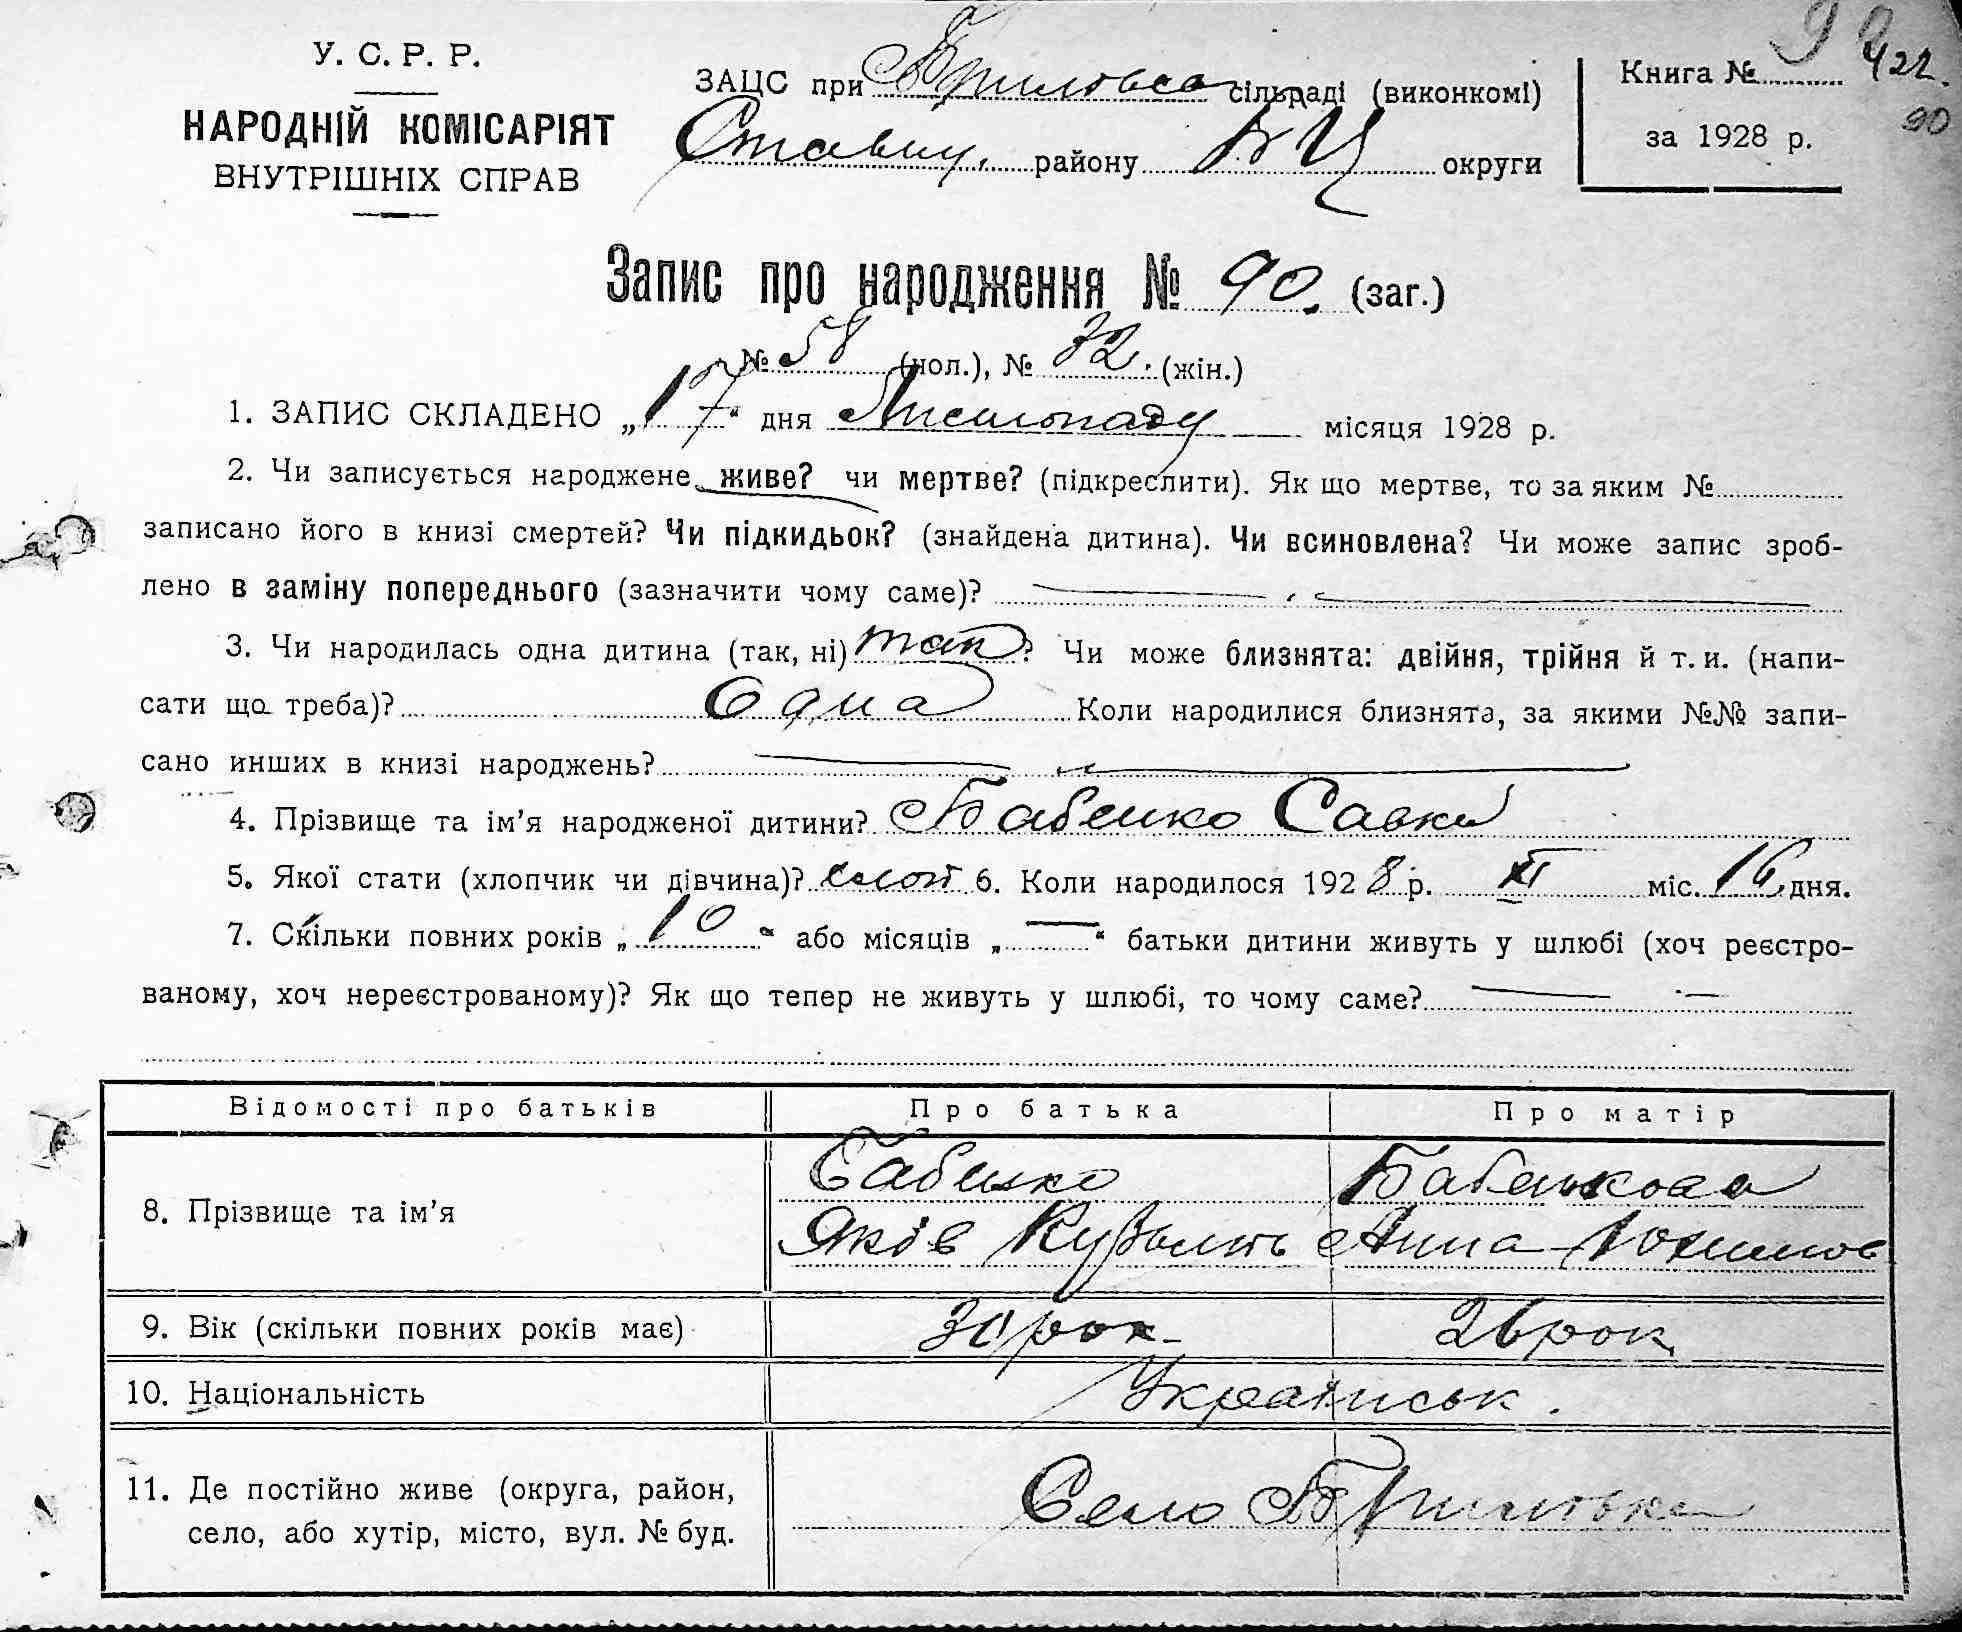 У. С. Р. Р.
НАРОДНІЙ КОМІСАРІЯТ
ВНУТРІШНІХ СПРАВ
ЗАЦС при сільраді (виконкомі)
Ставищ. району БЦ округи
Книга № 9
422.
за 1928 р.
90
Запис про народження № 90. (заг.)
№ 58 (чол.), № 32. (жін.)
1. ЗАПИС СКЛАДЕНО „17“ дня Листопаду місяця 1928 р.
2. Чи записується народжене живе? чи мертве? (підкреслити). Як що мертве, то за яким №
записано його в книзі смертей? Чи підкидьок? (знайдена дитина). Чи всиновлена? Чи може запис зроб-
лено в заміну попереднього (зазначити чому саме)?
3. Чи народилась одна дитина (так, ні) так? Чи може близнята: двійня, трійня й т. и. (напи-
сати що треба)? Одна Коли народилися близнята, за якими №№ запи-
сано инших в книзі народжень?
4. Прізвище та ім’я народженої дитини? Бабенко Савка
5. Якої стати (хлопчик чи дівчина)? хлоп 6. Коли народилося 1928 р. XI міс. 16 дня.
7. Скільки повних років „10“ або місяців „—“ батьки дитини живуть у шлюбі (хоч реєстро-
ваному, хоч нереєстрованому)? Як що тепер не живуть у шлюбі, то чому саме?
Відомості про батьків Про батька Про матір
8. Прізвище та ім’я
Бабенко Бабенкова
Яків Анна
9. Вік (скільки повних років має) 30 рок 26 рок
10. Національність Українськ.
11. Де постійно живе (округа, район,
село, або хутір, місто, вул. № буд.
Село